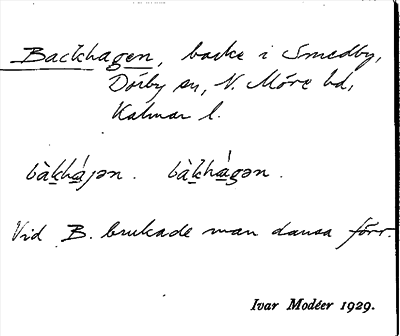 Backhagen, backe i Smedby,
Dörby sn, N. Möre hd,
Kalmar l.
bàkháȷən. bàkhágən.
Vid B. brukade man dansa förr.
Ivar Modéer 1929.